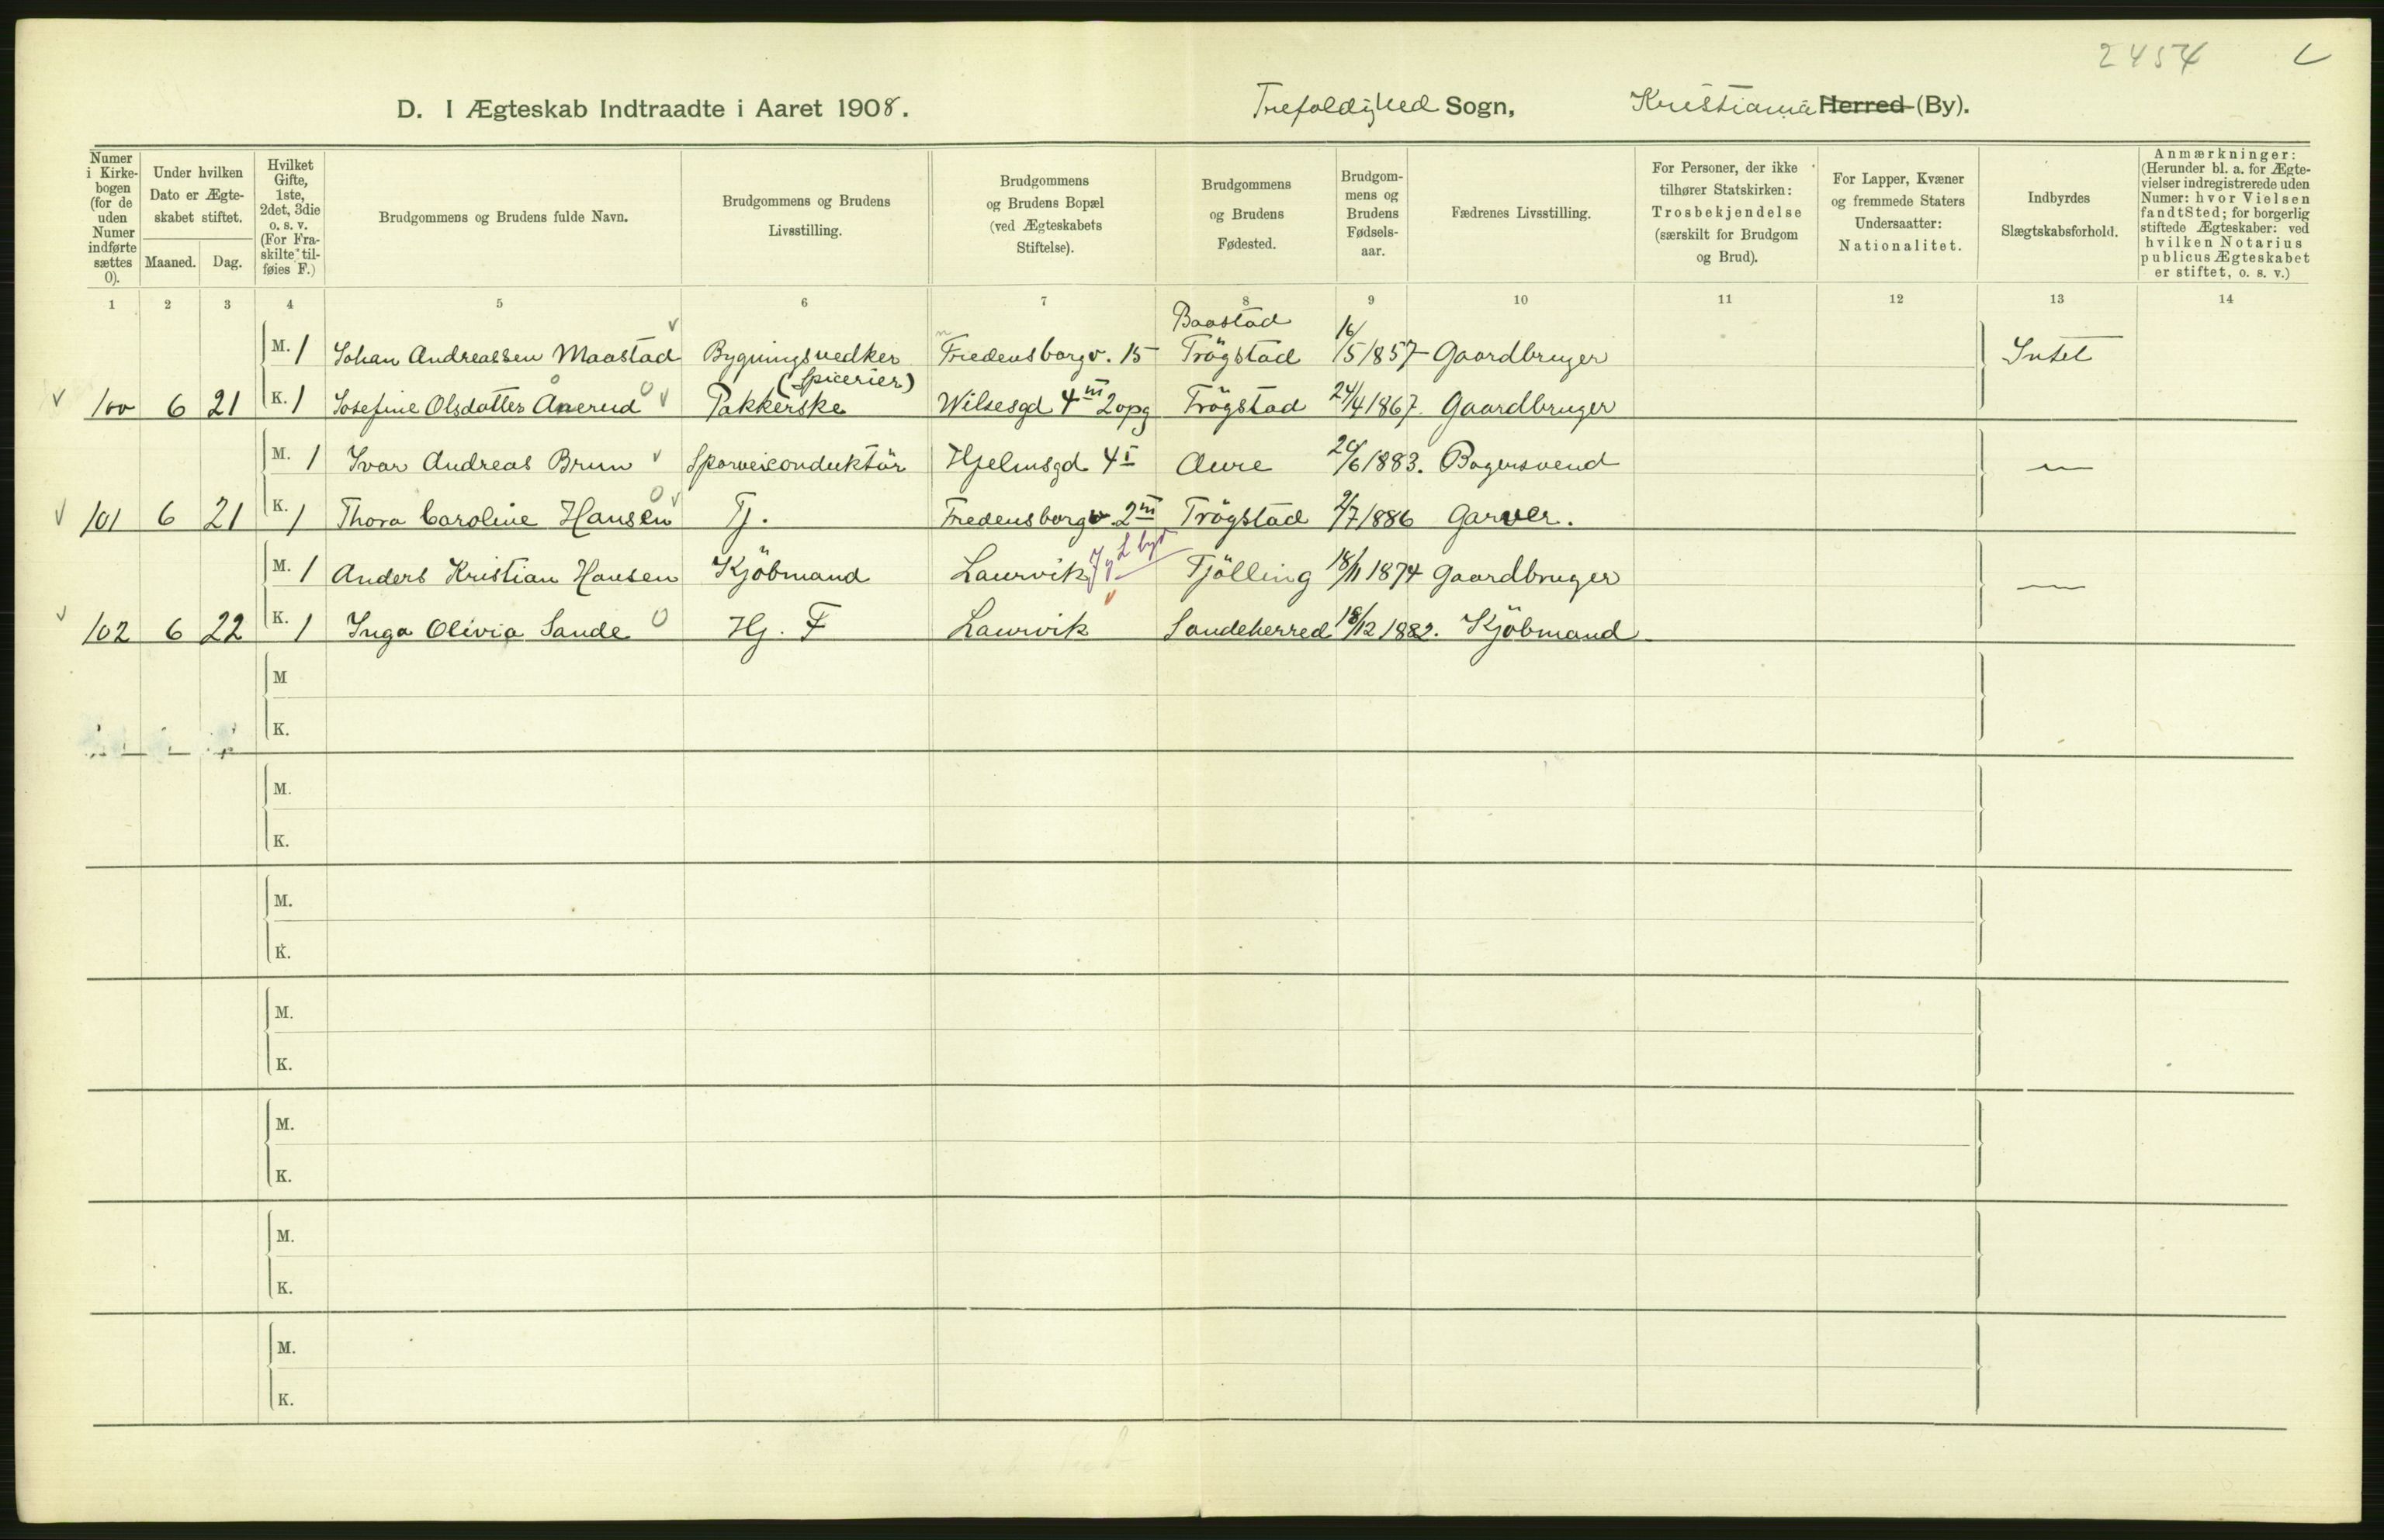 2454
D. I Ægteskab Indtraadte i Aaret 1908. Trefoldighed Sogn, Kristiania Herred (By).
Numer i Kirkebogen (for de uden Numer indførte sættes 0).
Under hvilken Dato er Ægteskabet stiftet.
Maaned. Dag.
Hvilket Gifte, 1ste, 2det, 3die o. s. v. (For Fraskilte tilføies F.)
Brudgommens og Brudens fulde Navn.
Brudgommens og Brudens Livsstilling.
Brudgommens og Brudens Bopæl (ved Ægteskabets Stiftelse).
Brudgommens og Brudens Fødested.
Brudgommens og Brudens Fødselsaar.
Fædrenes Livsstilling.
For Personer, der ikke tilhører Statskirken: Trosbekjendelse (særskilt for Brudgom og Brud).
For Lapper, Kvæner og fremmede Staters Undersaatter: Nationalitet.
Indbyrdes Slægtskabsforhold.
Anmærkninger: (Herunder bl. a. for Ægtevielser indregistrerede uden Numer: hvor Vielsen fandt Sted; for borgerlig stiftede Ægteskaber: ved hvilken Notarius publicus Ægteskabet er stiftet, o. s. v.)
1 2 3 4 5 6 7 8 9 10 11 12 13 14
M. 1 Johan Andreassen Maastad Bygningssnedker Fredensborgv. 15 Baastad Trögstad 16/5 1857 Gaardbruger Intet
100 6 21 K. 1 Josefine Olsdatter Ånerud Pakkerske (Spicerier) Wilsesgd 4 III 2 opg Trögstad 24/4 1867. Gaardbruger
M. 1 Ivar Andreas Brun Sporveiconduktör Hjelmsgd 4 I Aure 20/6 1883. Bagersvend —"—
101 6 21 K. 1 Thora Caroline Hansen Tj. Fredensborgv. 2 III Trögstad 9/7 1886 Garver.
M. 1 Anders Kristian Hansen Kjöbmand Laurvik Tjölling 18/11 1874 Gaardbruger —
102 6 22 K. 1 Inga Olivia Sande Hj. F Laurvik Sandeherred 18/12 1882. Kjöbmand
M
K.
M.
K.
M.
K.
M.
K.
M.
K.
M.
K.
M.
K.